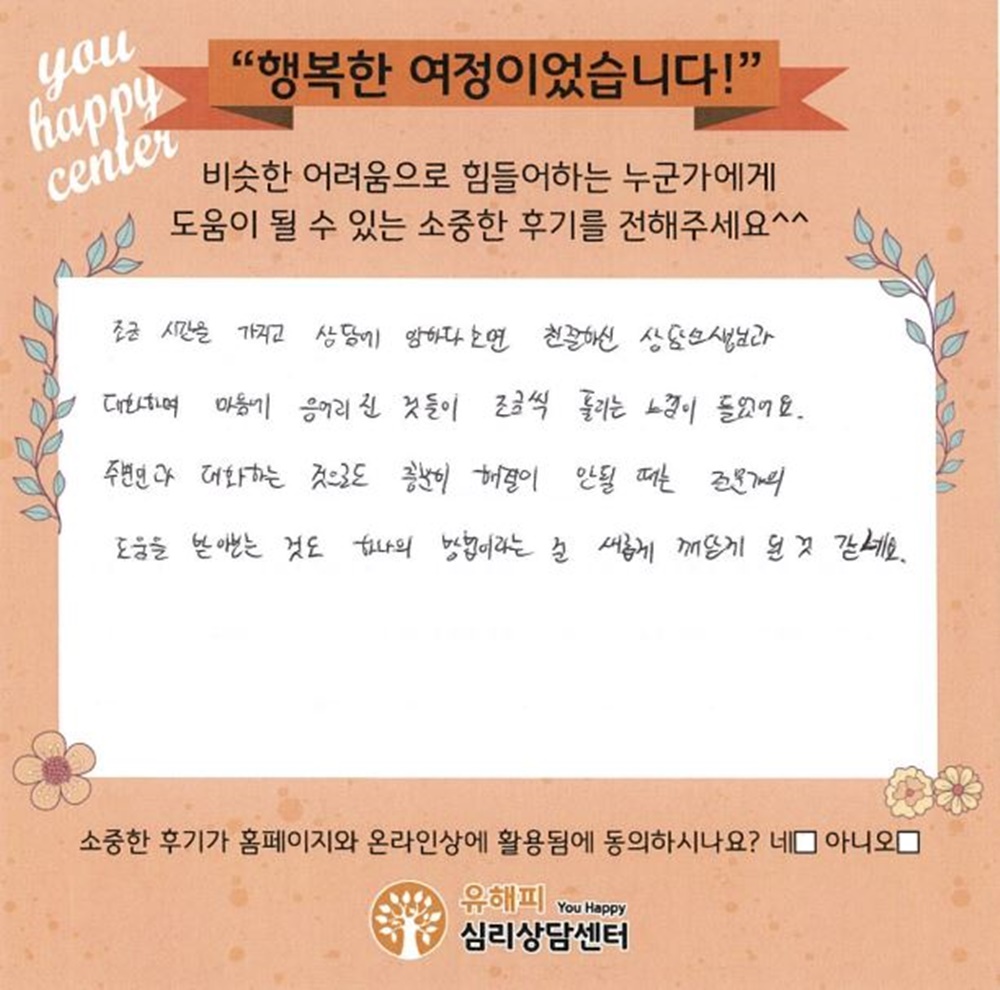 you
happy
center
“행복한 여정이었습니다!”
비슷한 어려움으로 힘들어하는 누군가에게
도움이 될 수 있는 소중한 후기를 전해주세요^^
조금 시간을 가지고 상담에 임하다보면 친절하신 상담선생님과
대화하며 마음에 응어리 진 것들이 조금씩 풀리는 느낌이 들었어요.
주변인과 대화하는 것으로도 충분히 해결이 안될 때는 전문가의
도움을 받아보는 것도 하나의 방법이라는 걸 새롭게 깨닫게 된 것 같네요.
소중한 후기가 홈페이지와 온라인상에 활용됨에 동의하시나요? 네□ 아니오□
유해피 You Happy
심리상담센터